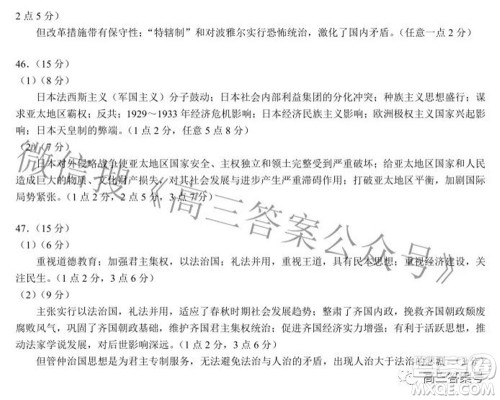 2 点 5 分）
但改革措施带有保守性；“特辖制”和对波雅尔实行恐怖统治，激化了国内矛盾。（任意一点 2 分）
46.（15 分）
（1）（8 分）
日本法西斯主义（军国主义）分子鼓动；日本社会内部利益集团的分化冲突；种族主义思想盛行；谋
求亚太地区霸权；反共；1929～1933 年经济危机影响；日本经济民族主义影响；欧洲极权主义国家兴起影
响；日本天皇制的弊端。（1 点 2 分，任意 5 点 8 分）
（2）（7 分）
日本对外侵略战争使亚太地区国家安全、主权独立和领土完整受到严重破坏；给亚太地区国家和人民
造成巨大的物质、文化财产损失；对其社会发展与进步产生严重滞碍作用；打破亚太地区平衡，加剧国际
局势紧张。（1 点 2 分，2 点 5 分，3 点 7 分）
47.（15 分）
（1）（6 分）
重视道德教育；加强君主集权，以法治国；礼法并用，重视王道，具有民本思想；重视经济建设，关
注民生。（1 点 2 分，3 点 6 分）
（2）（9 分）
主张实行以法治国、礼法并用，适应了春秋时期社会发展大趋势；整肃了齐国内政，挽救齐国朝政颓废
腐败风气，巩固了齐国朝政基础，维护了齐国君主集权统治；促进齐国经济实力增强；有利于国家稳定，推
动法家学说发展，对后世影响深远。（1 点 2 分，3 点 6 分）
但管仲治国思想是为君主专制服务，无法避免法与人治的矛盾，出现人治大于法治
微信搜《高三答案公众号》
高三答案号